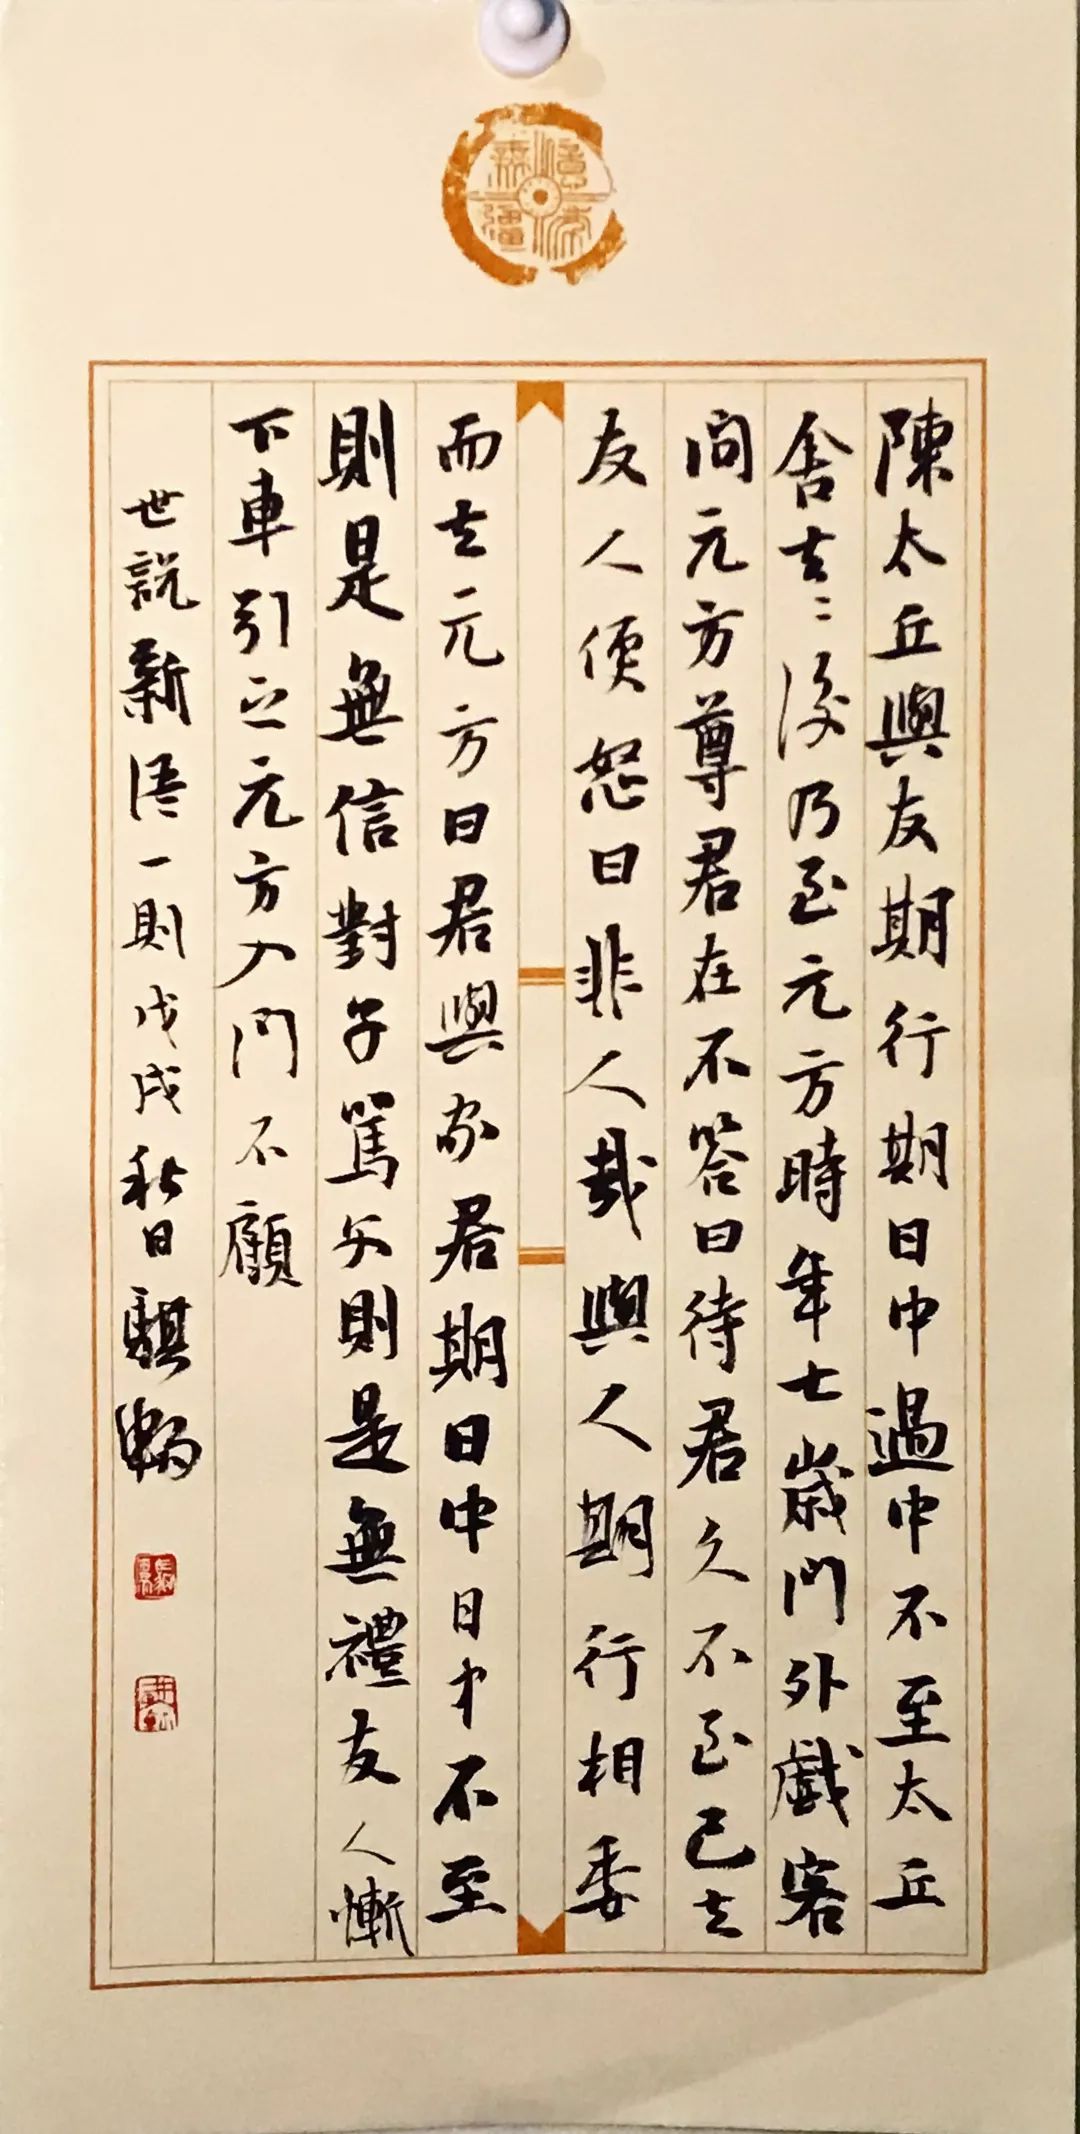 陳太丘與友期行期日中過中不至太丘
舍去〻後乃至元方時年七歲門外戲客
問元方尊君在不答曰待君久不至已去
友人便怒曰非人哉與人期行相委
而去元方曰君與家君期日中日中不至
則是無信對子罵父則是無禮友人慚
下車引之元方入門不顧
世說新語一則戊戌秋日騏